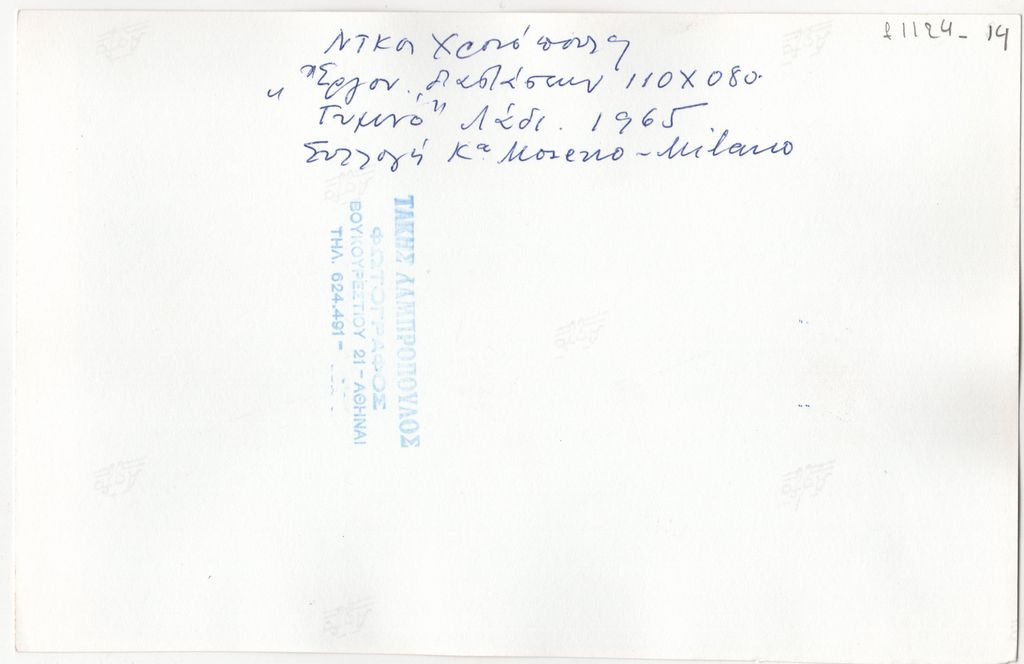 £1124- 14
Ντκοι
"Έργον. διαστάσεων 110Χ080.
Γυμνό" Λάδι. 1965
Συλλογή Κα Moreno - Milano
ΤΑΚΗΣ ΛΑΜΠΡΟΠΟΥΛΟΣ
ΦΩΤΟΓΡΑΦΟΣ
ΒΟΥΚΟΥΡΕΣΤΙΟΥ 21 - ΑΘΗΝΑΙ
ΤΗΛ. 624.491 -